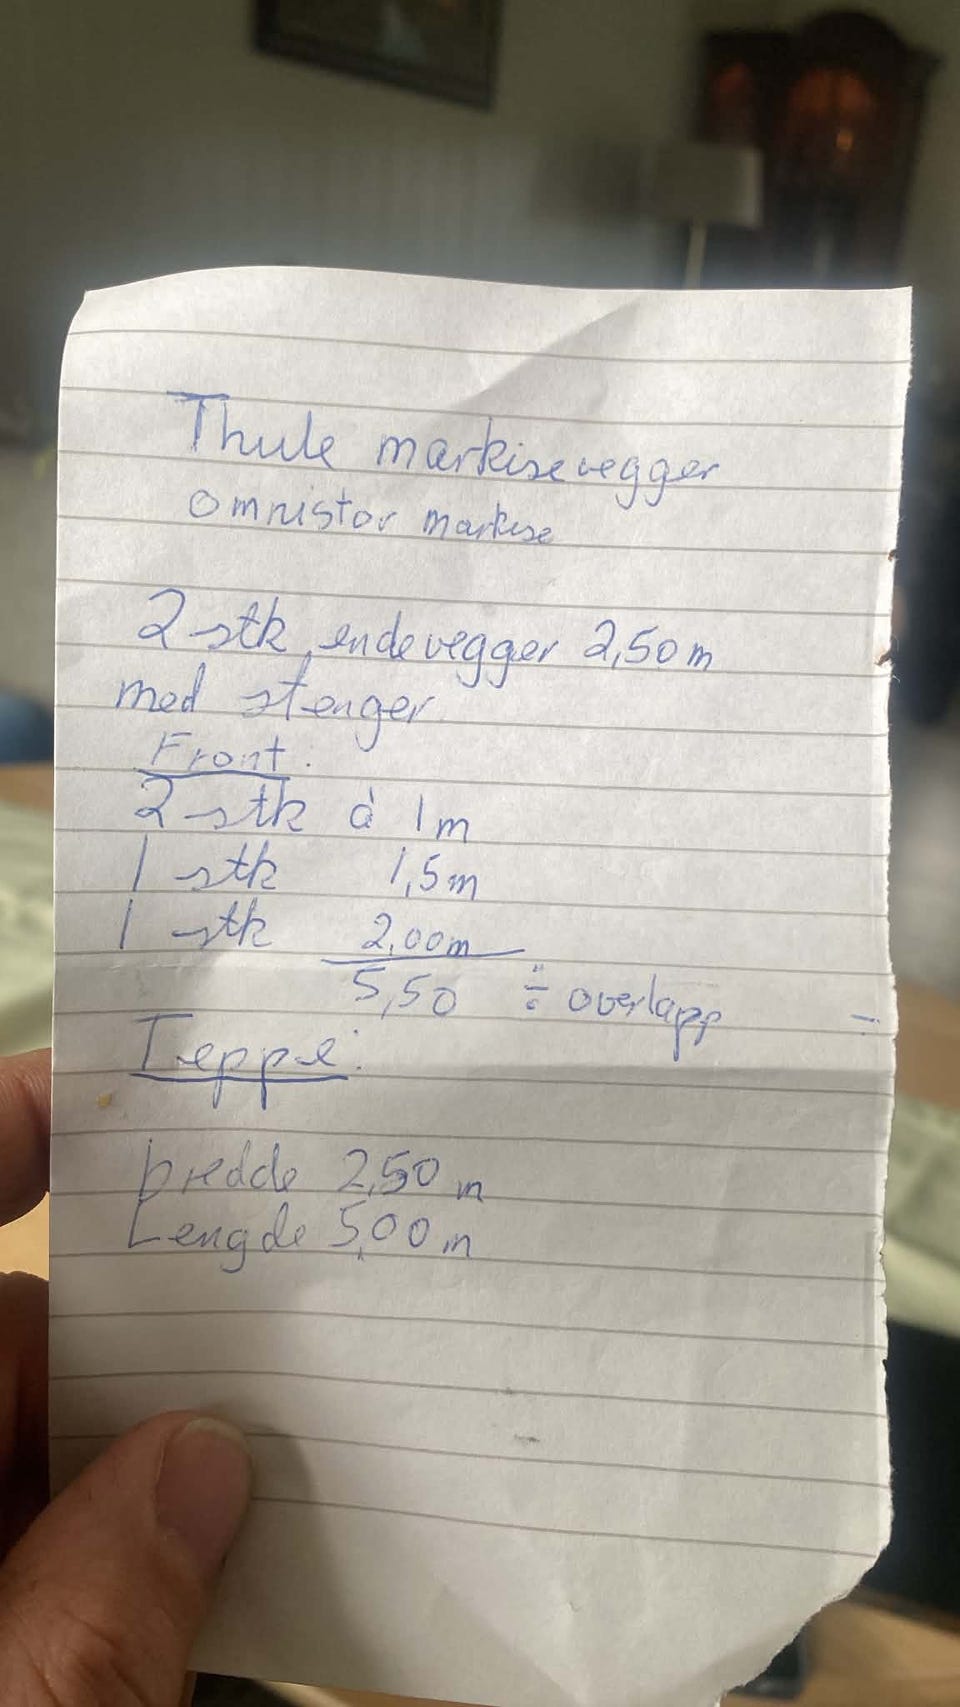 Thule markisevegger
omnistor markise
2 stk endevegger 2,50 m
med stenger
Front:
2 stk à 1m
1 stk 1,5m
1 stk 2,00m
5,50 ÷ overlapp
Teppe:
bredde 2,50 m
Lengde 5,00 m